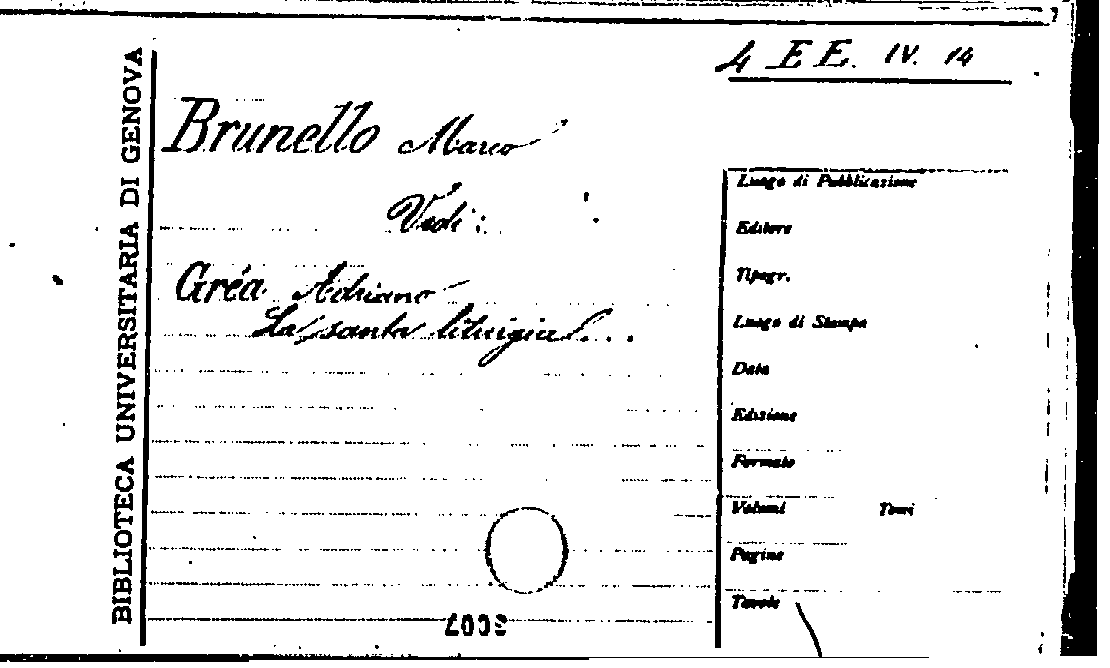 4 E E. IV. 14
BIBLIOTECA UNIVERSITARIA DI GENOVA
Brunello Marco
Vedi:
Gréa Adriano
La santa liturgia...
Luogo di Pubblicazione
Editore
Tipogr.
Luogo di Stampa
Data
Edizione
Formato
Volumi Tomi
Pagine
Tavole